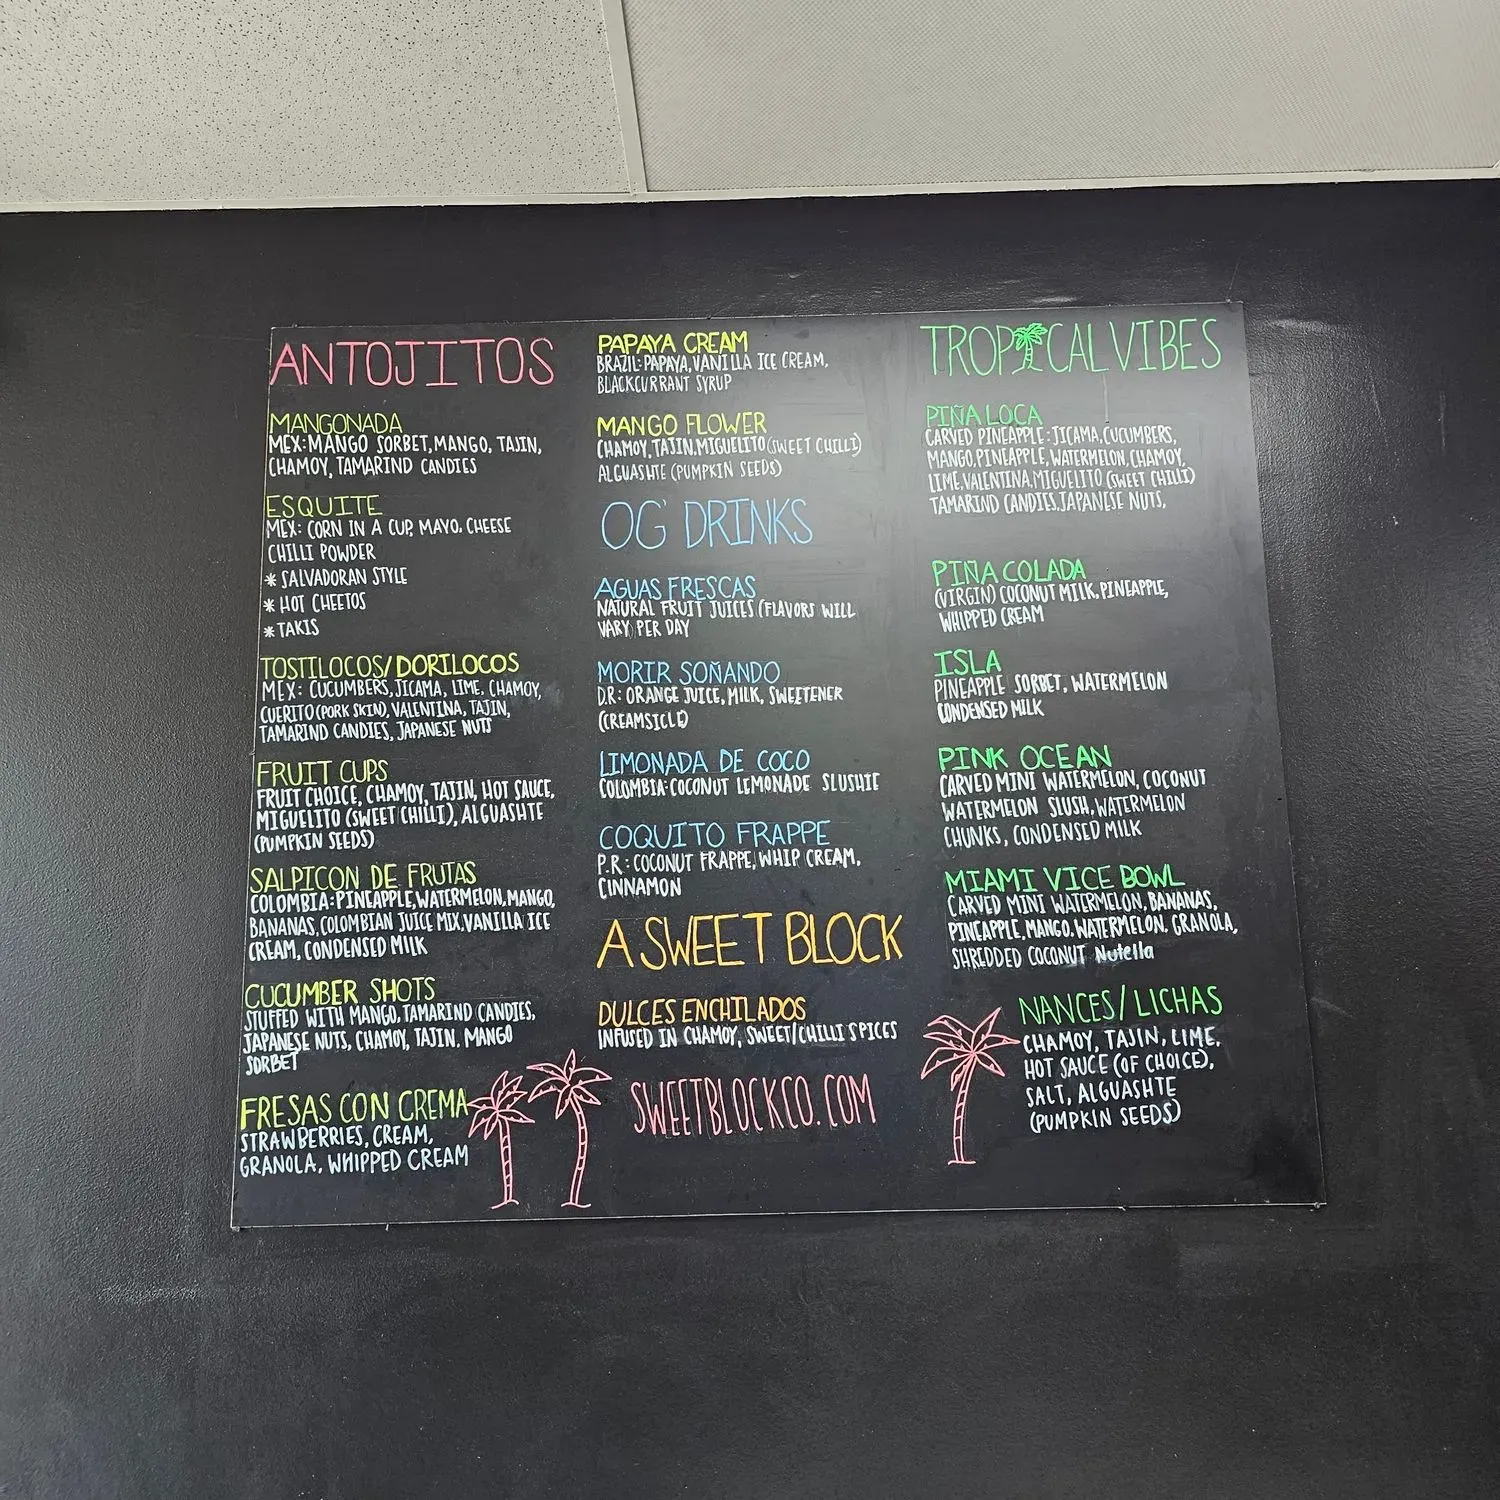 ANTOJITOS
MANGONADA
MEX: MANGO SORBET, MANGO, TAJIN,
CHAMOY, TAMARIND CANDIES
ESQUITE
MEX: CORN IN A CUP, MAYO, CHEESE
CHILLI POWDER
* SALVADORAN STYLE
* HOT CHEETOS
* TAKIS
TOSTILOCOS/DORILOCOS
MEX: CUCUMBERS, JICAMA, LIME, CHAMOY,
CUERITO (PORK SKIN), VALENTINA, TAJIN,
TAMARIND CANDIES, JAPANESE NUTS
FRUIT CUPS
FRUIT CHOICE, CHAMOY, TAJIN, HOT SAUCE,
MIGUELITO (SWEET CHILLI), ALGUASHTE
(PUMPKIN SEEDS)
SALPICON DE FRUTAS
COLOMBIA: PINEAPPLE, WATERMELON, MANGO,
BANANAS, COLOMBIAN JUICE MIX, VANILLA ICE
CREAM, CONDENSED MILK
CUCUMBER SHOTS
STUFFED WITH MANGO, TAMARIND CANDIES,
JAPANESE NUTS, CHAMOY, TAJIN, MANGO
SORBET
FRESAS CON CREMA
STRAWBERRIES, CREAM,
GRANOLA, WHIPPED CREAM
PAPAYA CREAM
BRAZIL: PAPAYA, VANILLA ICE CREAM,
BLACKCURRANT SYRUP
MANGO FLOWER
CHAMOY, TAJIN, MIGUELITO (SWEET CHILLI)
ALGUASHTE (PUMPKIN SEEDS)
OG' DRINKS
AGUAS FRESCAS
NATURAL FRUIT JUICES (FLAVORS WILL
VARY PER DAY
MORIR SOÑANDO
D.R: ORANGE JUICE, MILK, SWEETENER
(CREAMSICLE)
LIMONADA DE COCO
COLOMBIA: COCONUT LEMONADE SLUSHIE
COQUITO FRAPPE
P.R: COCONUT FRAPPE, WHIP CREAM,
CINNAMON
A SWEET BLOCK
DULCES ENCHILADOS
INFUSED IN CHAMOY, SWEET/CHILLI SPICES
SWEETBLOCKCO.COM
TROPICAL VIBES
PIÑA LOCA
CARVED PINEAPPLE: JICAMA, CUCUMBERS,
MANGO, PINEAPPLE, WATERMELON, CHAMOY,
LIME, VALENTINA, MIGUELITO (SWEET CHILLI)
TAMARIND CANDIES, JAPANESE NUTS,
PIÑA COLADA
(VIRGIN) COCONUT MILK, PINEAPPLE,
WHIPPED CREAM
ISLA
PINEAPPLE SORBET, WATERMELON
CONDENSED MILK
PINK OCEAN
CARVED MINI WATERMELON, COCONUT
WATERMELON SLUSH, WATERMELON
CHUNKS, CONDENSED MILK
MIAMI VICE BOWL
CARVED MINI WATERMELON, BANANAS,
PINEAPPLE, MANGO, WATERMELON, GRANOLA,
SHREDDED COCONUT Nutella
NANCES/LICHAS
CHAMOY, TAJIN, LIME,
HOT SAUCE (OF CHOICE),
SALT, ALGUASHTE
(PUMPKIN SEEDS)